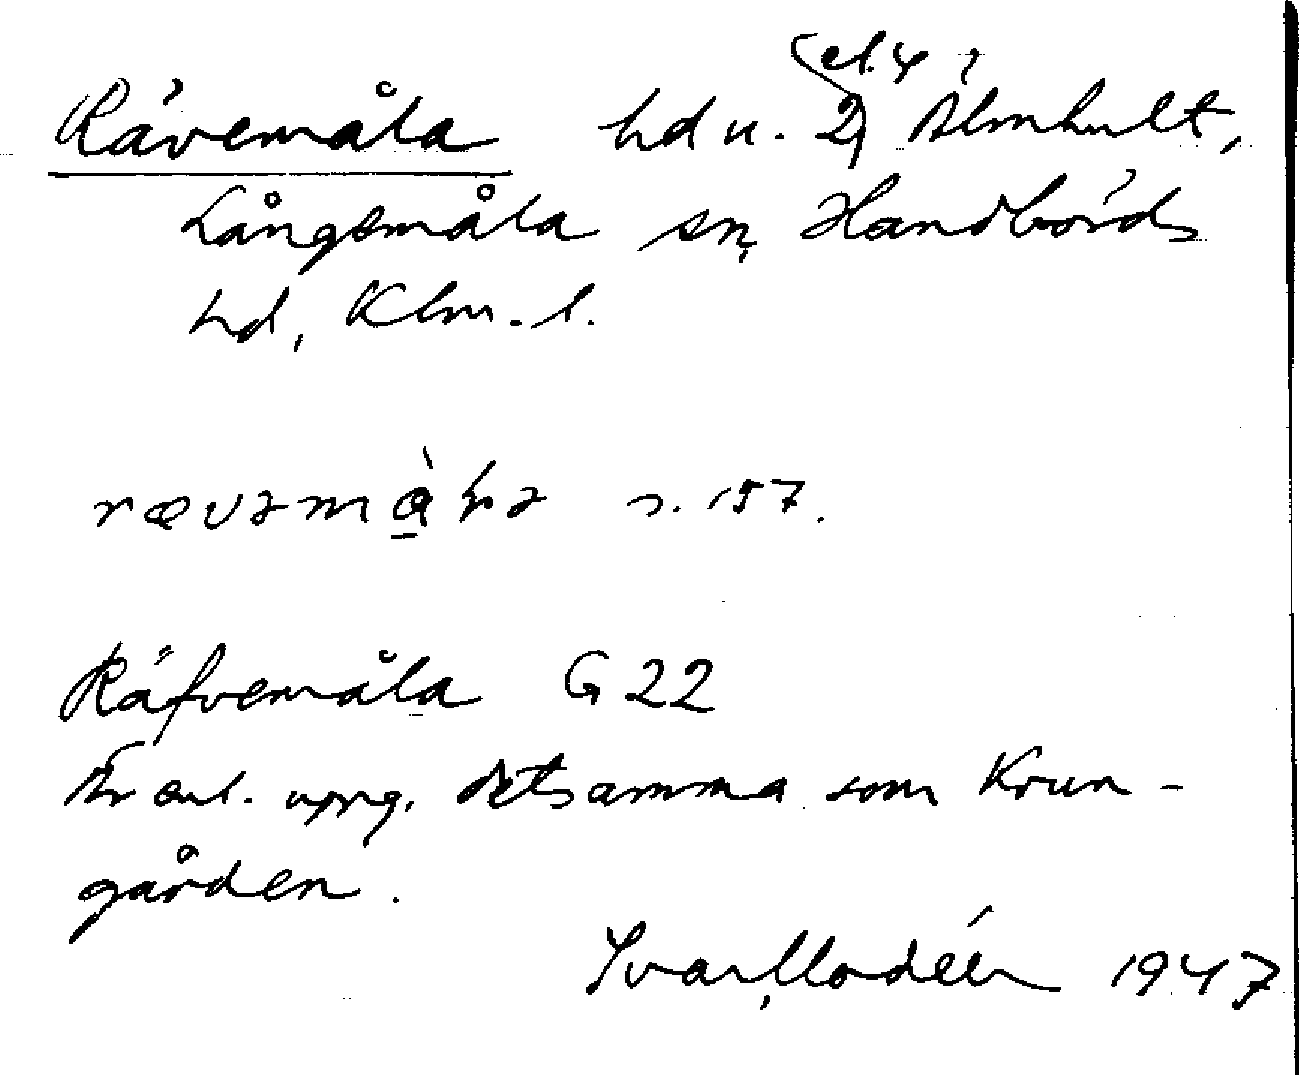 Rävemåla hd u. 2 (el. 4) Älmhult,
Långemåla sn, Handbörds
hd, Klm. l.
rævəmå̀ɫa s. 157.
Räfvemåla G 22
Är enl. uppg. detsamma som Krun-
gården.
Ivar Modéer 1947